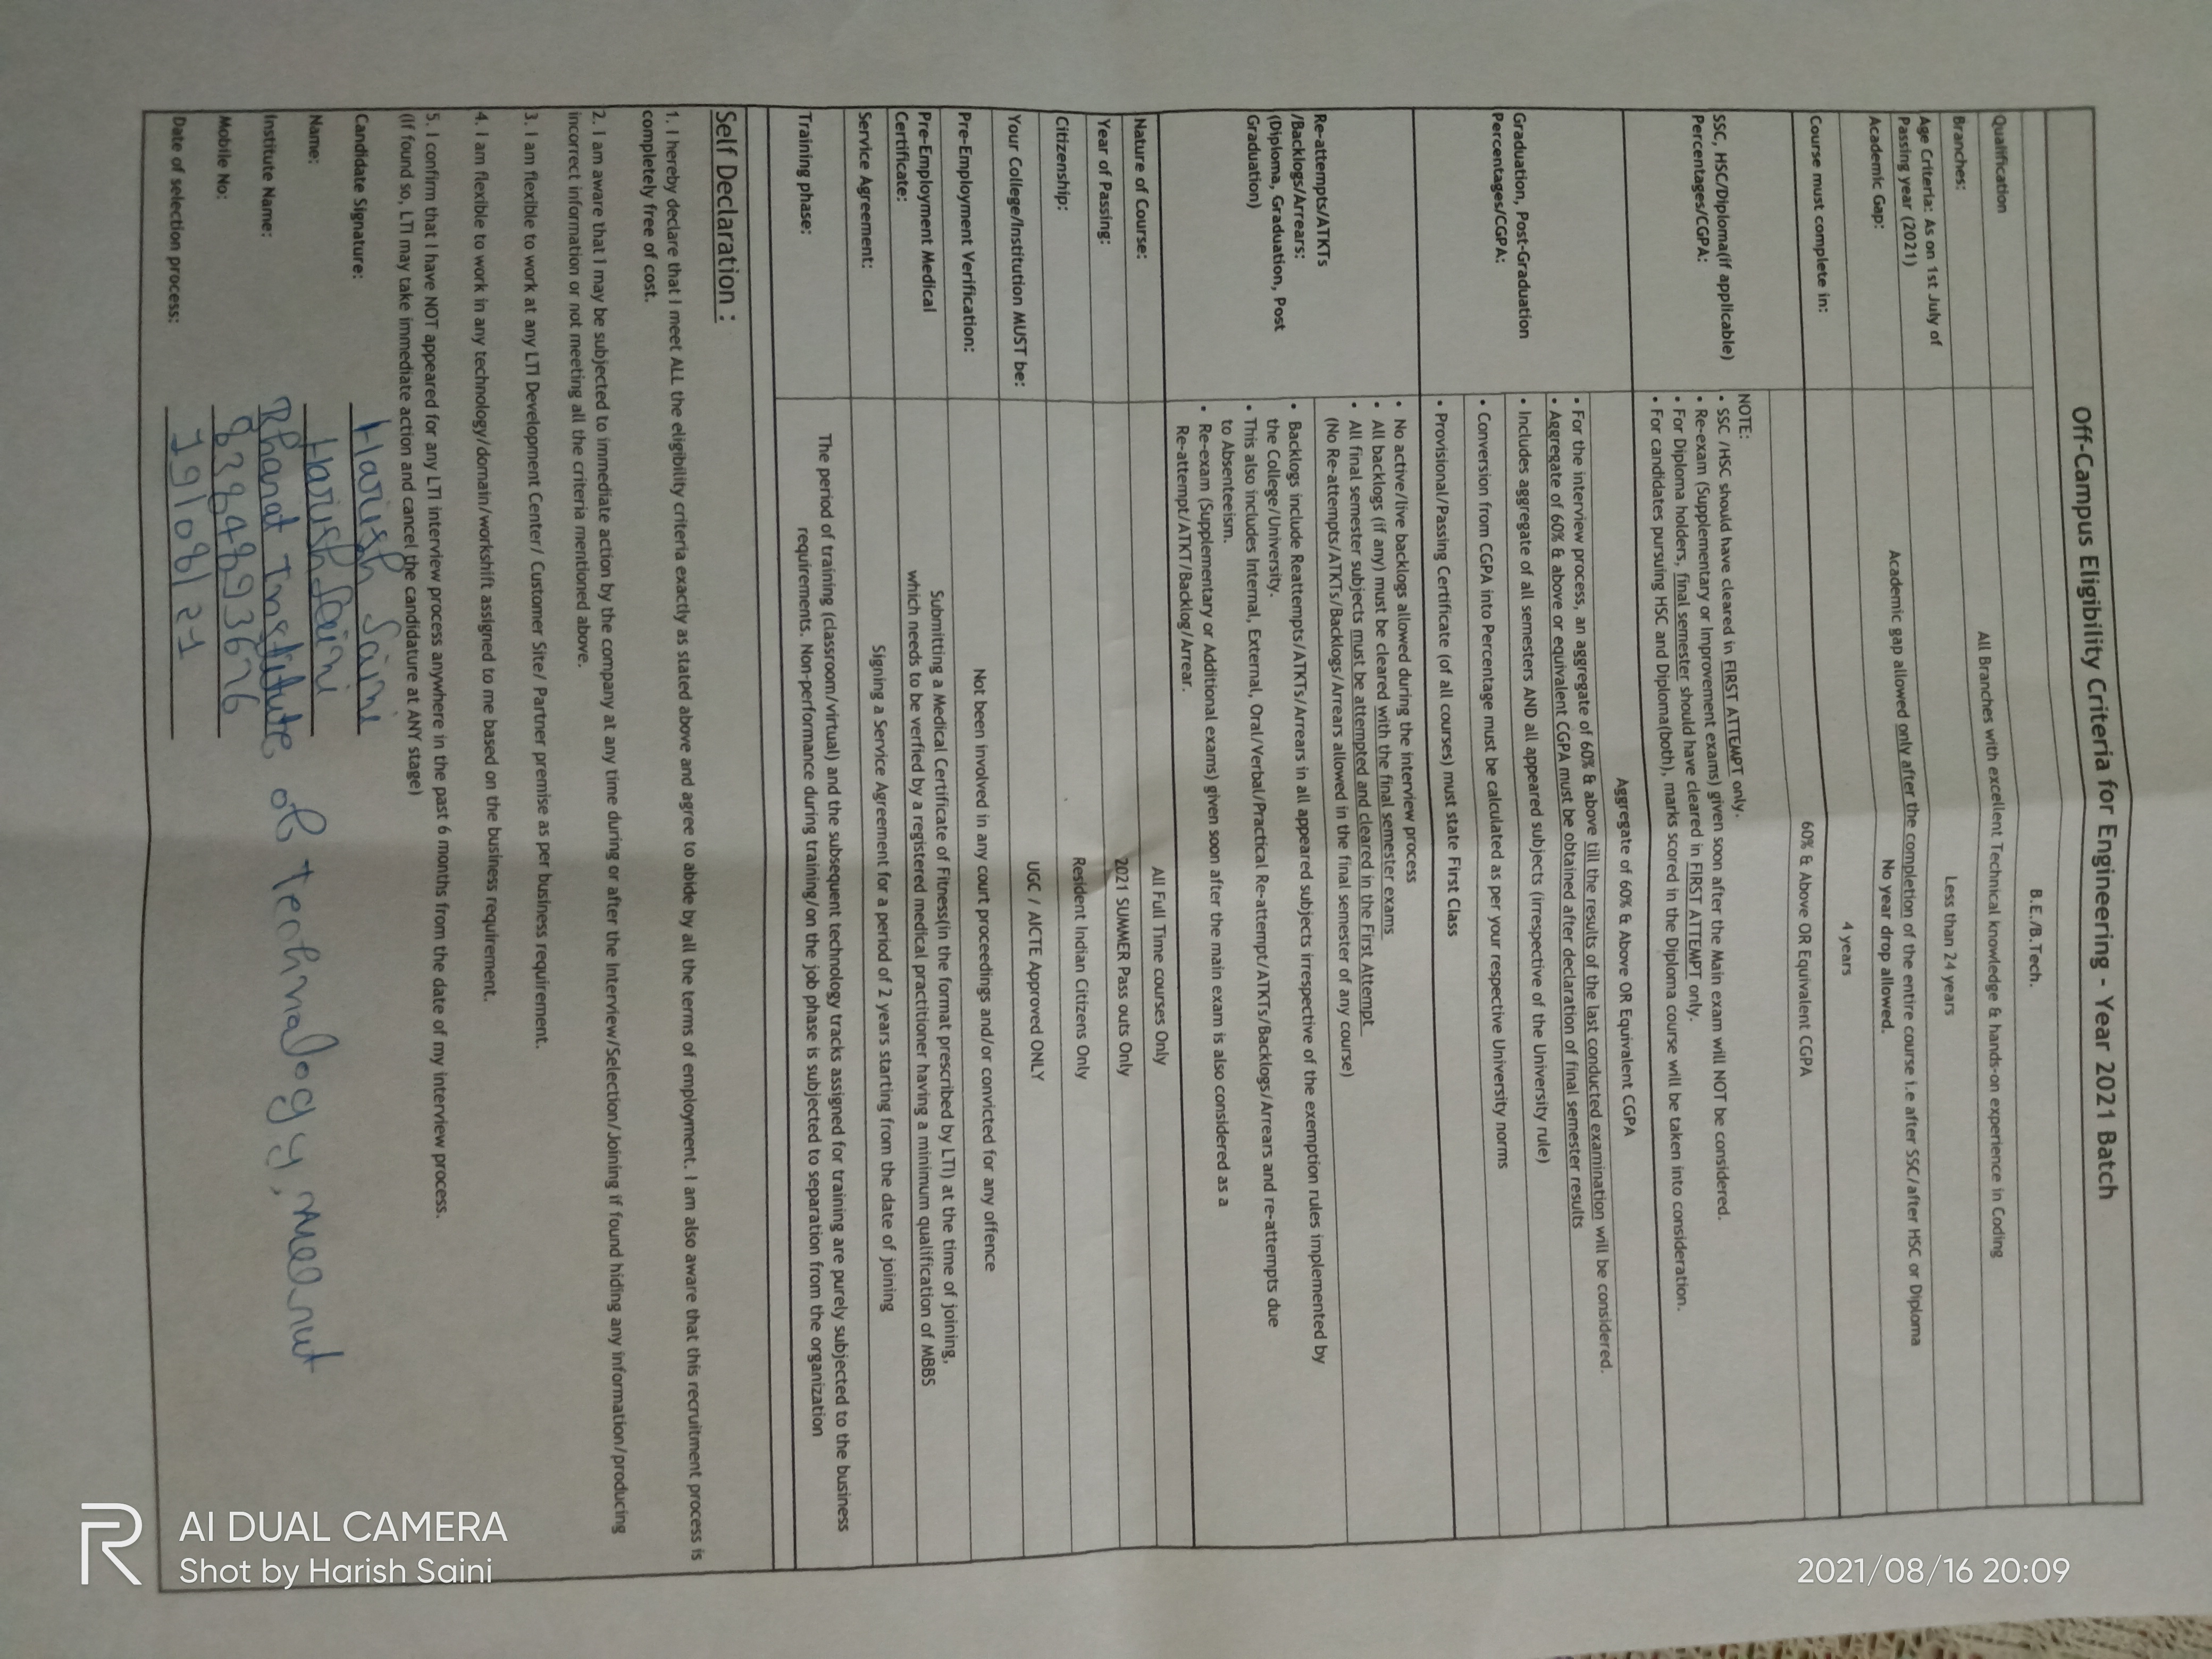 Off-Campus Eligibility Criteria for Engineering - Year 2021 Batch
Qualification
B.E./B.Tech.
Branches:
All Branches with excellent Technical knowledge & hands-on experience in Coding
Age Criteria: As on 1st July of
Passing year (2021)
Less than 24 years
Academic Gap:
Academic gap allowed only after the completion of the entire course i.e after SSC/after HSC or Diploma
No year drop allowed.
Course must complete in:
4 years
SSC, HSC/Diploma(if applicable)
Percentages/CGPA:
60% & Above OR Equivalent CGPA
NOTE:
• SSC /HSC should have cleared in FIRST ATTEMPT only.
• Re-exam (Supplementary or Improvement exams) given soon after the Main exam will NOT be considered.
• For Diploma holders, final semester should have cleared in FIRST ATTEMPT only.
• For candidates pursuing HSC and Diploma(both), marks scored in the Diploma course will be taken into consideration.
Graduation, Post-Graduation
Percentages/CGPA:
Aggregate of 60% & Above OR Equivalent CGPA
• For the interview process, an aggregate of 60% & above till the results of the last conducted examination will be considered.
• Aggregate of 60% & above or equivalent CGPA must be obtained after declaration of final semester results
• Includes aggregate of all semesters AND all appeared subjects (irrespective of the University rule)
• Conversion from CGPA into Percentage must be calculated as per your respective University norms
• Provisional/Passing Certificate (of all courses) must state First Class
Re-attempts/ATKTs
/Backlogs/Arrears:
(Diploma, Graduation, Post
Graduation)
• No active/live backlogs allowed during the interview process
• All backlogs (if any) must be cleared with the final semester exams
• All final semester subjects must be attempted and cleared in the First Attempt
(No Re-attempts/ATKTs/Backlogs/Arrears allowed in the final semester of any course)
• Backlogs include Reattempts/ATKTs/Arrears in all appeared subjects irrespective of the exemption rules implemented by
the College/University.
• This also includes Internal, External, Oral/Verbal/Practical Re-attempt/ATKTs/Backlogs/Arrears and re-attempts due
to Absenteeism.
• Re-exam (Supplementary or Additional exams) given soon after the main exam is also considered as a
Re-attempt/ATKT/Backlog/Arrear.
Nature of Course:
All Full Time courses Only
Year of Passing:
2021 SUMMER Pass outs Only
Citizenship:
Resident Indian Citizens Only
Your College/Institution MUST be:
UGC / AICTE Approved ONLY
Pre-Employment Verification:
Not been involved in any court proceedings and/or convicted for any offence
Pre-Employment Medical
Certificate:
Submitting a Medical Certificate of Fitness(in the format prescribed by LTI) at the time of joining,
which needs to be verfied by a registered medical practitioner having a minimum qualification of MBBS
Service Agreement:
Signing a Service Agreement for a period of 2 years starting from the date of joining
Training phase:
The period of training (classroom/virtual) and the subsequent technology tracks assigned for training are purely subjected to the business
requirements. Non-performance during training/on the job phase is subjected to separation from the organization
Self Declaration :
1. I hereby declare that I meet ALL the eligibility criteria exactly as stated above and agree to abide by all the terms of employment. I am also aware that this recruitment process is
completely free of cost.
2. I am aware that I may be subjected to immediate action by the company at any time during or after the Interview/Selection/Joining if found hiding any information/producing
incorrect information or not meeting all the criteria mentioned above.
3. I am flexible to work at any LTI Development Center/ Customer Site/ Partner premise as per business requirement.
4. I am flexible to work in any technology/domain/workshift assigned to me based on the business requirement.
5. I confirm that I have NOT appeared for any LTI interview process anywhere in the past 6 months from the date of my interview process.
(If found so, LTI may take immediate action and cancel the candidature at ANY stage)
Candidate Signature: Harish Saini
Name: Harish Saini
Institute Name: Bharat Institute of technology, meerut
Mobile No: 8384893676
Date of selection process: 19/08/21
2021/08/16 20:09
AI DUAL CAMERA
Shot by Harish Saini